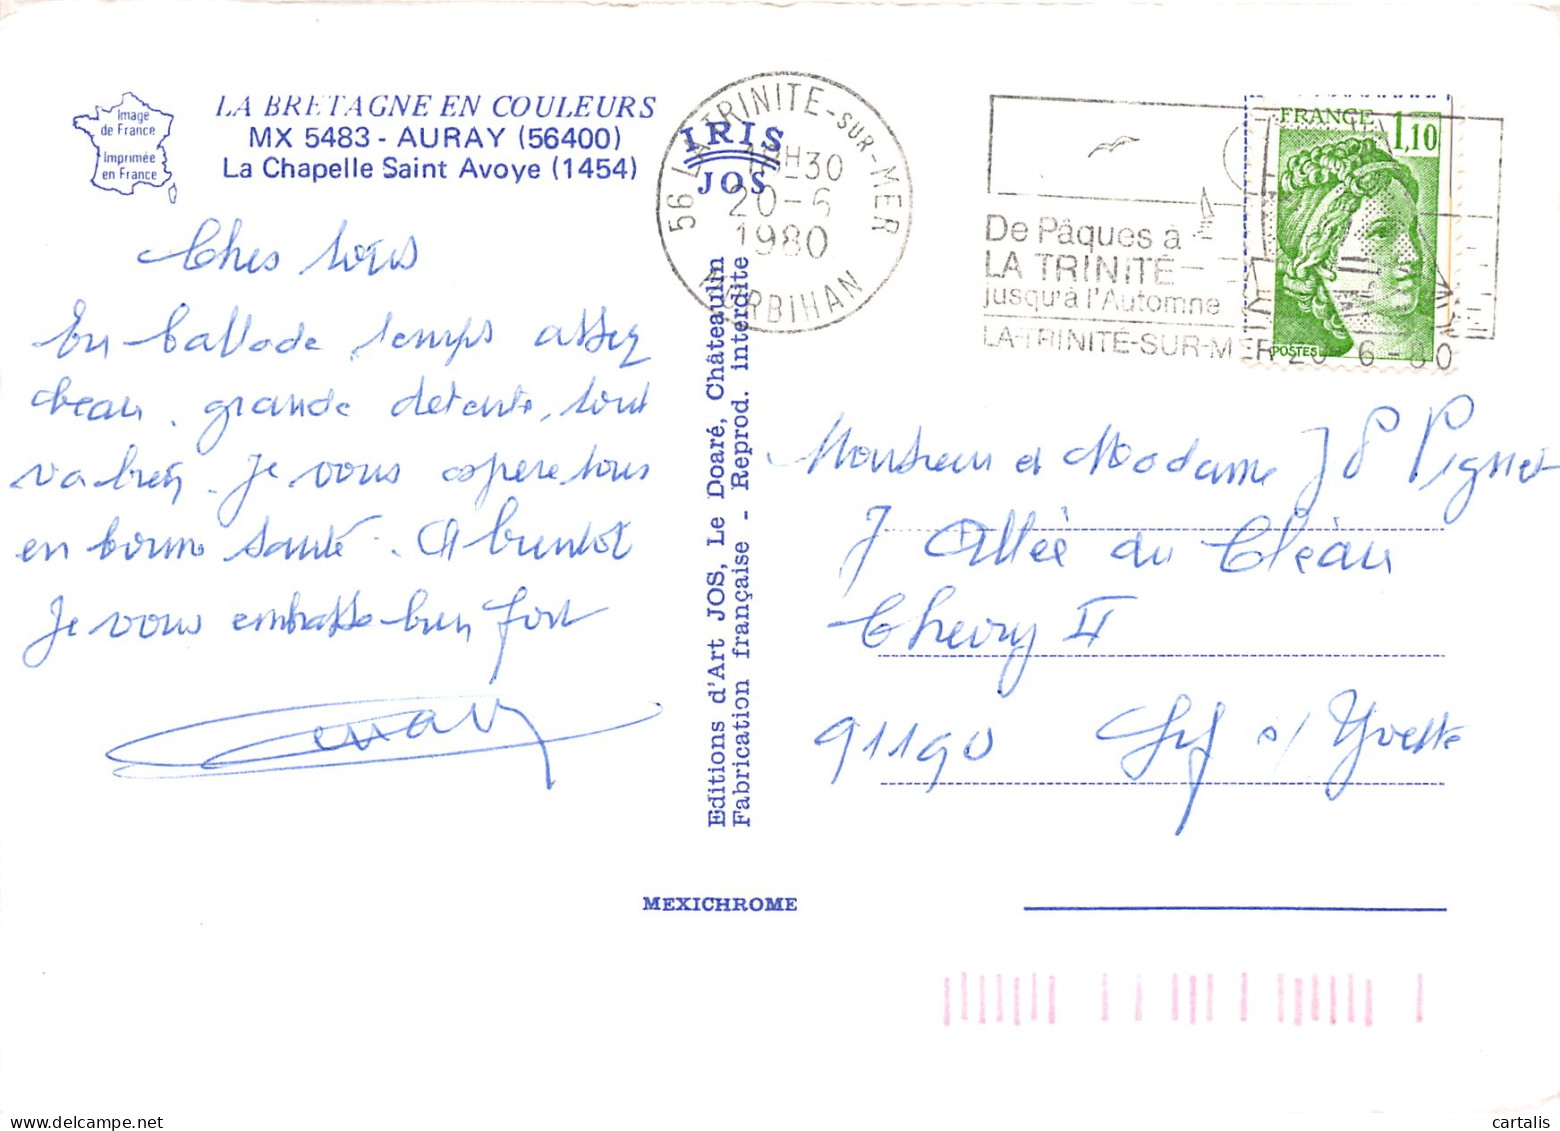 Image
de France
Imprimée
en France
LA BRETAGNE EN COULEURS
MX 5483 - AURAY (56400)
La Chapelle Saint Avoye (1454)
Chers tous
En ballade temps assez
beau. grande detente, tout
va bien. Je vous espere tous
en bonne santé. A bientot
Je vous embrasse bien fort
IRIS
JOS
56 LA TRINITE-SUR-MER
18H30
20-6
1980
MORBIHAN
De Pâques à
LA TRINITÉ
jusqu'à l'Automne
LA-TRINITÉ-SUR-MER 20-6-80
FRANCE
1,10
POSTES
Editions d'Art JOS, Le Doaré, Châteaulin
Fabrication française - Reprod. interdite
Monsieur et Madame J P Pignet
7 Allée du Cléau
Chevry II
91190 Gif s/ Yvette
MEXICHROME
cartalis